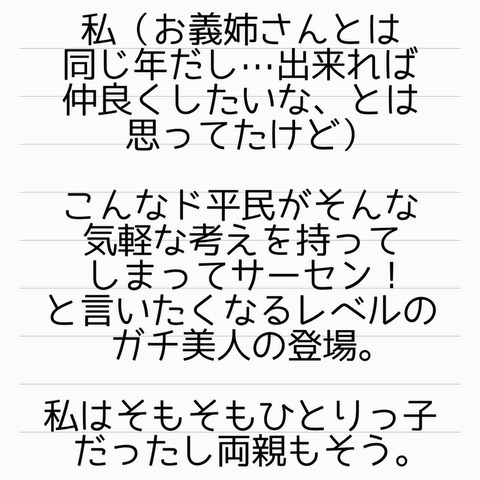 私（お義姉さんとは
同じ年だし…出来れば
仲良くしたいな、とは
思ってたけど）
こんなド平民がそんな
気軽な考えを持って
しまってサーセン！
と言いたくなるレベルの
ガチ美人の登場。
私はそもそもひとりっ子
だったし両親もそう。